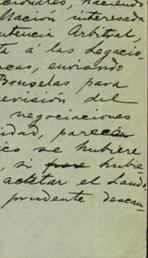 cionales, haciendo
Nacion interesada
ntencia Arbitral,
te á las Legacio
cas, enviando
Bruselas para
revisión del
negociaciones
idad, parecer
ico se hubiere
, si hubie
acetar el Laudo
prudente descan